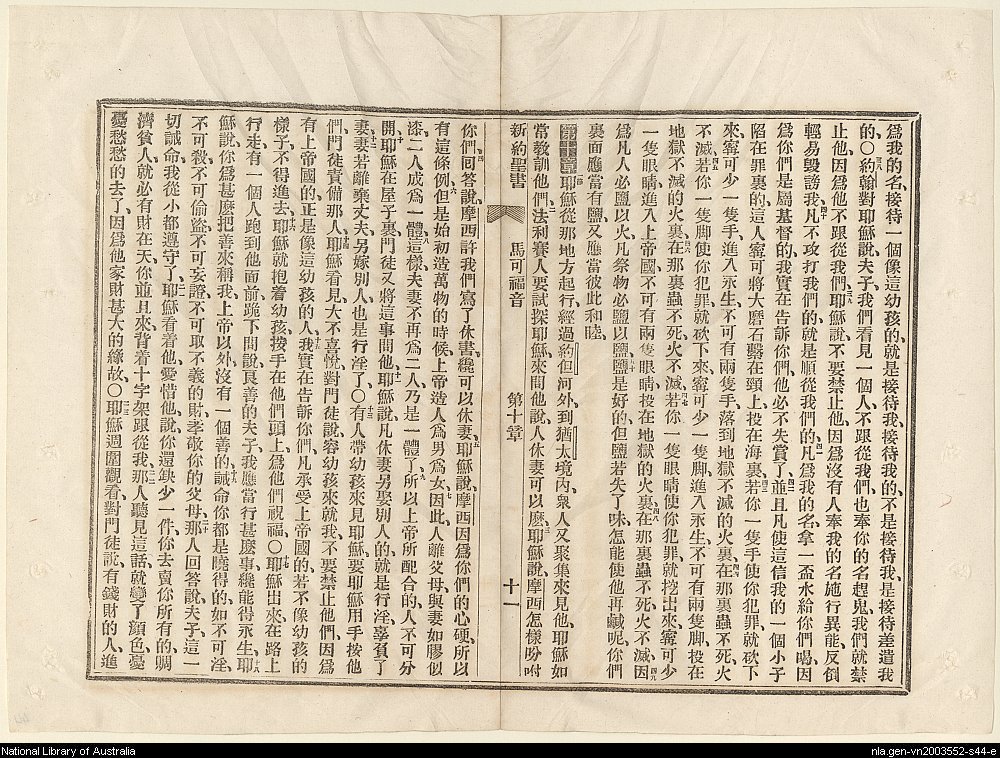 爲我的名、接待一個像這幼孩的、就是接待我、接待我的、不是接待我、是接待差遣我
的、○約翰對耶穌說、夫子、我們看見一個人、不跟從我們、也奉你的名趕鬼、我們就禁
止他、因爲他不跟從我們、耶穌說、不要禁止他、因爲沒有人奉我的名施行異能、反倒
輕易毀謗我、凡不攻打我們的、就是順從我們的、凡爲我的名、拿一盃水給你們喝、因
爲你們是屬基督的、我實在告訴你們、他必不失賞了、並且凡使這信我的一個小子
陷在罪裏的、這人寧可將大磨石磬在頸上、投在海裏、若你一隻手使你犯罪、就砍下
來、寧可少一隻手進入永生、不可有兩隻手、落到地獄不滅的火裏、在那裏蟲不死、火
不滅、若你一隻脚使你犯罪、就砍下來、寧可少一隻脚進入永生、不可有兩隻脚、投在
地獄不滅的火裏、在那裏蟲不死、火不滅、若你一隻眼睛使你犯罪、就挖出來、寧可少
一隻眼睛進入上帝國、不可有兩隻眼睛、投在地獄的火裏、在那裏蟲不死、火不滅、因
爲凡人必鹽以火、凡祭物必鹽以鹽、鹽是好的、但鹽若失了味、怎能使他再鹹呢、你們
裏面應當有鹽、又應當彼此和睦、
第十章 耶穌從那地方起行、經過約但河外、到猶太境內、衆人又聚集來見他、耶穌如
常敎訓他們、法利賽人要試探耶穌、來問他說、人休妻可以麼、耶穌說、摩西怎樣吩咐
新約聖書 馬可福音 第十章 十一
你們、回答說、摩西許我們寫了休書、纔可以休妻、耶穌說、摩西因爲你們的心硬、所以
有這條例、但是始初造萬物的時候、上帝造人爲男爲女、因此人離父母與妻如膠似
漆、二人成爲一體、這樣夫妻不再爲二人、乃是一體了、所以上帝所配合的、人不可分
開、耶穌在屋子裏、門徒又將這事問他、耶穌說、凡休妻另娶別人的、就是行淫、辜負了
妻、妻若離棄丈夫、另嫁別人、也是行淫了、○有人帶幼孩來見耶穌、要耶穌用手按他
們、門徒責備那人、耶穌看見、大不喜悅、對門徒說、容幼孩來就我、不要禁止他們、因爲
有上帝國的、正是像這幼孩的人、我實在告訴你們、凡承受上帝國的、若不像幼孩的
樣子、不得進去、耶穌就抱着幼孩、按手在他們頭上、爲他們祝福、○耶穌出來在路上
行走、有一個人跑到他面前跪下問說、良善的夫子、我應當行甚麼事、纔能得永生、耶
穌說、你爲甚麼把善來稱我、上帝以外、沒有一個善的、誡命你都是曉得的、如不可淫、
不可殺、不可偸盜、不可妄證、不可取不義的財、孝敬你的父母、那人回答說、夫子、這一
切誡命、我從小都遵守了、耶穌看着他、愛惜他說、你還缺少一件、你去賣你所有的、賙
濟貧人、就必有財在天、你並且來背着十字架跟從我、那人聽見這話、就變了顔色、憂
憂愁愁的去了、因爲他家財甚大的緣故、○耶穌週圍觀看、對門徒說、有錢財的人、進
National Library of Australia
nla.gen-vn2003552-s44-e